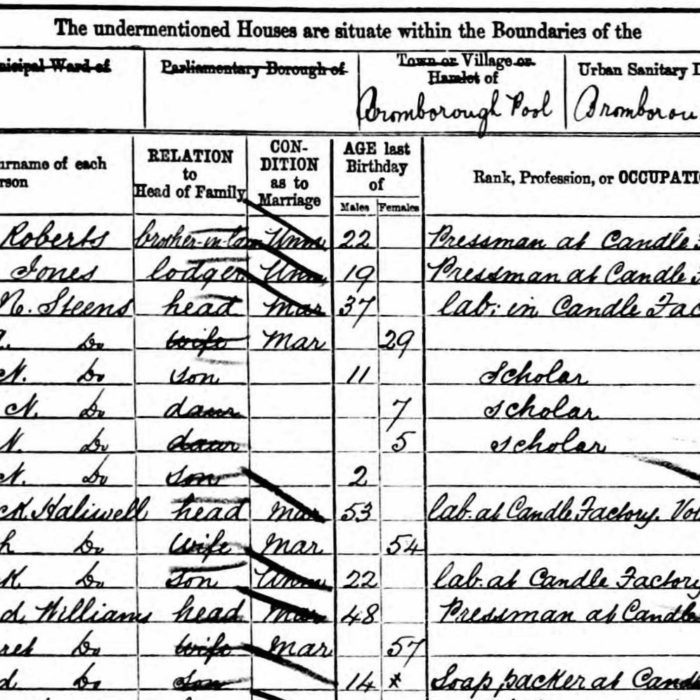 The undermentioned Houses are situate within the Boundaries of the
Municipal Ward of Parliamentary Borough of Town or Village or Urban Sanitary
Hamlet of
Bromborough Pool Bromborou
urname of each RELATION CON- AGE last Rank, Profession, or OCCUPATI
rson to DITION Birthday
Head of Family as to of
Marriage Males Females
Roberts brother-in-law Unm 22 Pressman at Candle
Jones lodger Unm 19 Pressman at Candle
N. Steens head Mar 37 lab: in Candle Fac
Do wife Mar 29
N. Do son 11 Scholar
N. Do daur 7 Scholar
N. Do daur 5 Scholar
N. Do son 2
ck Haliwell head Mar 53 lab. at Candle Factory.
h Do Wife Mar 54
K. Do Son Unm 22 lab. at Candle Factory
d Williams head Mar 48 Pressman at Candle
ret Do wife Mar 57
d. Do Son 14 * Soap packer at Cand